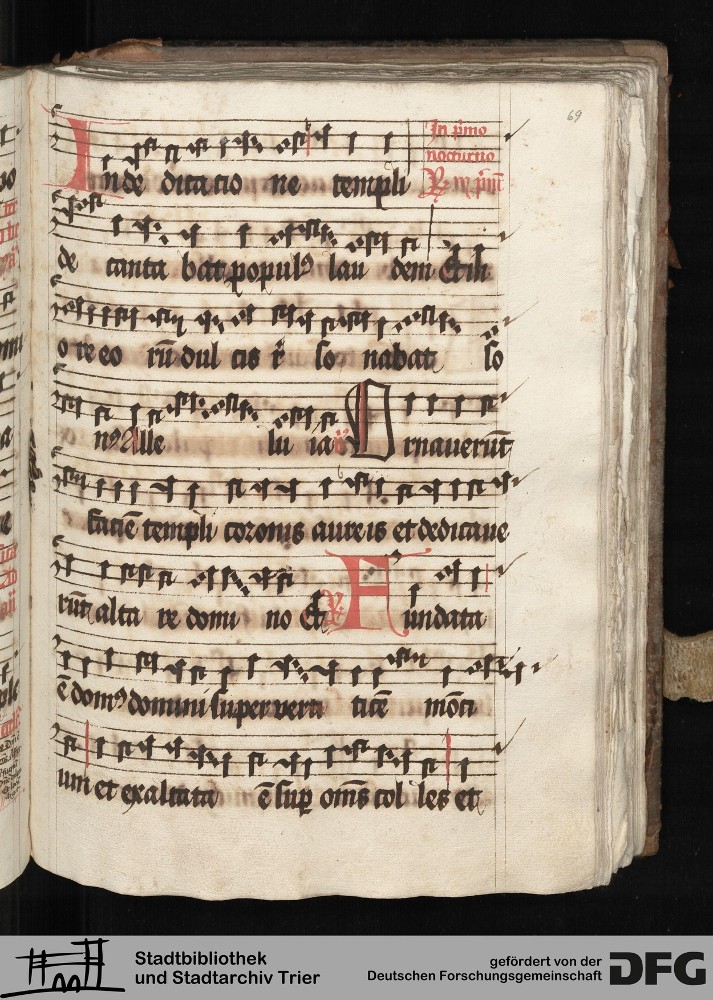 69
In p̄mo
nocturno
In de dica cio ne templi
de canta bat popul9 lau dem Et ih
o re eo rū dul cis r̄ so nabat so
n9 Alle lu ia Ornaverūt
faciē templi coronis aureis et dedicave
rūt alta re domi no Et Fundata
ē dom9 domini super verti ticē mōti
um et exaltata ē sup om̄s col les et
Stadtbibliothek
und Stadtarchiv Trier
gefördert von der
Deutschen Forschungsgemeinschaft
DFG